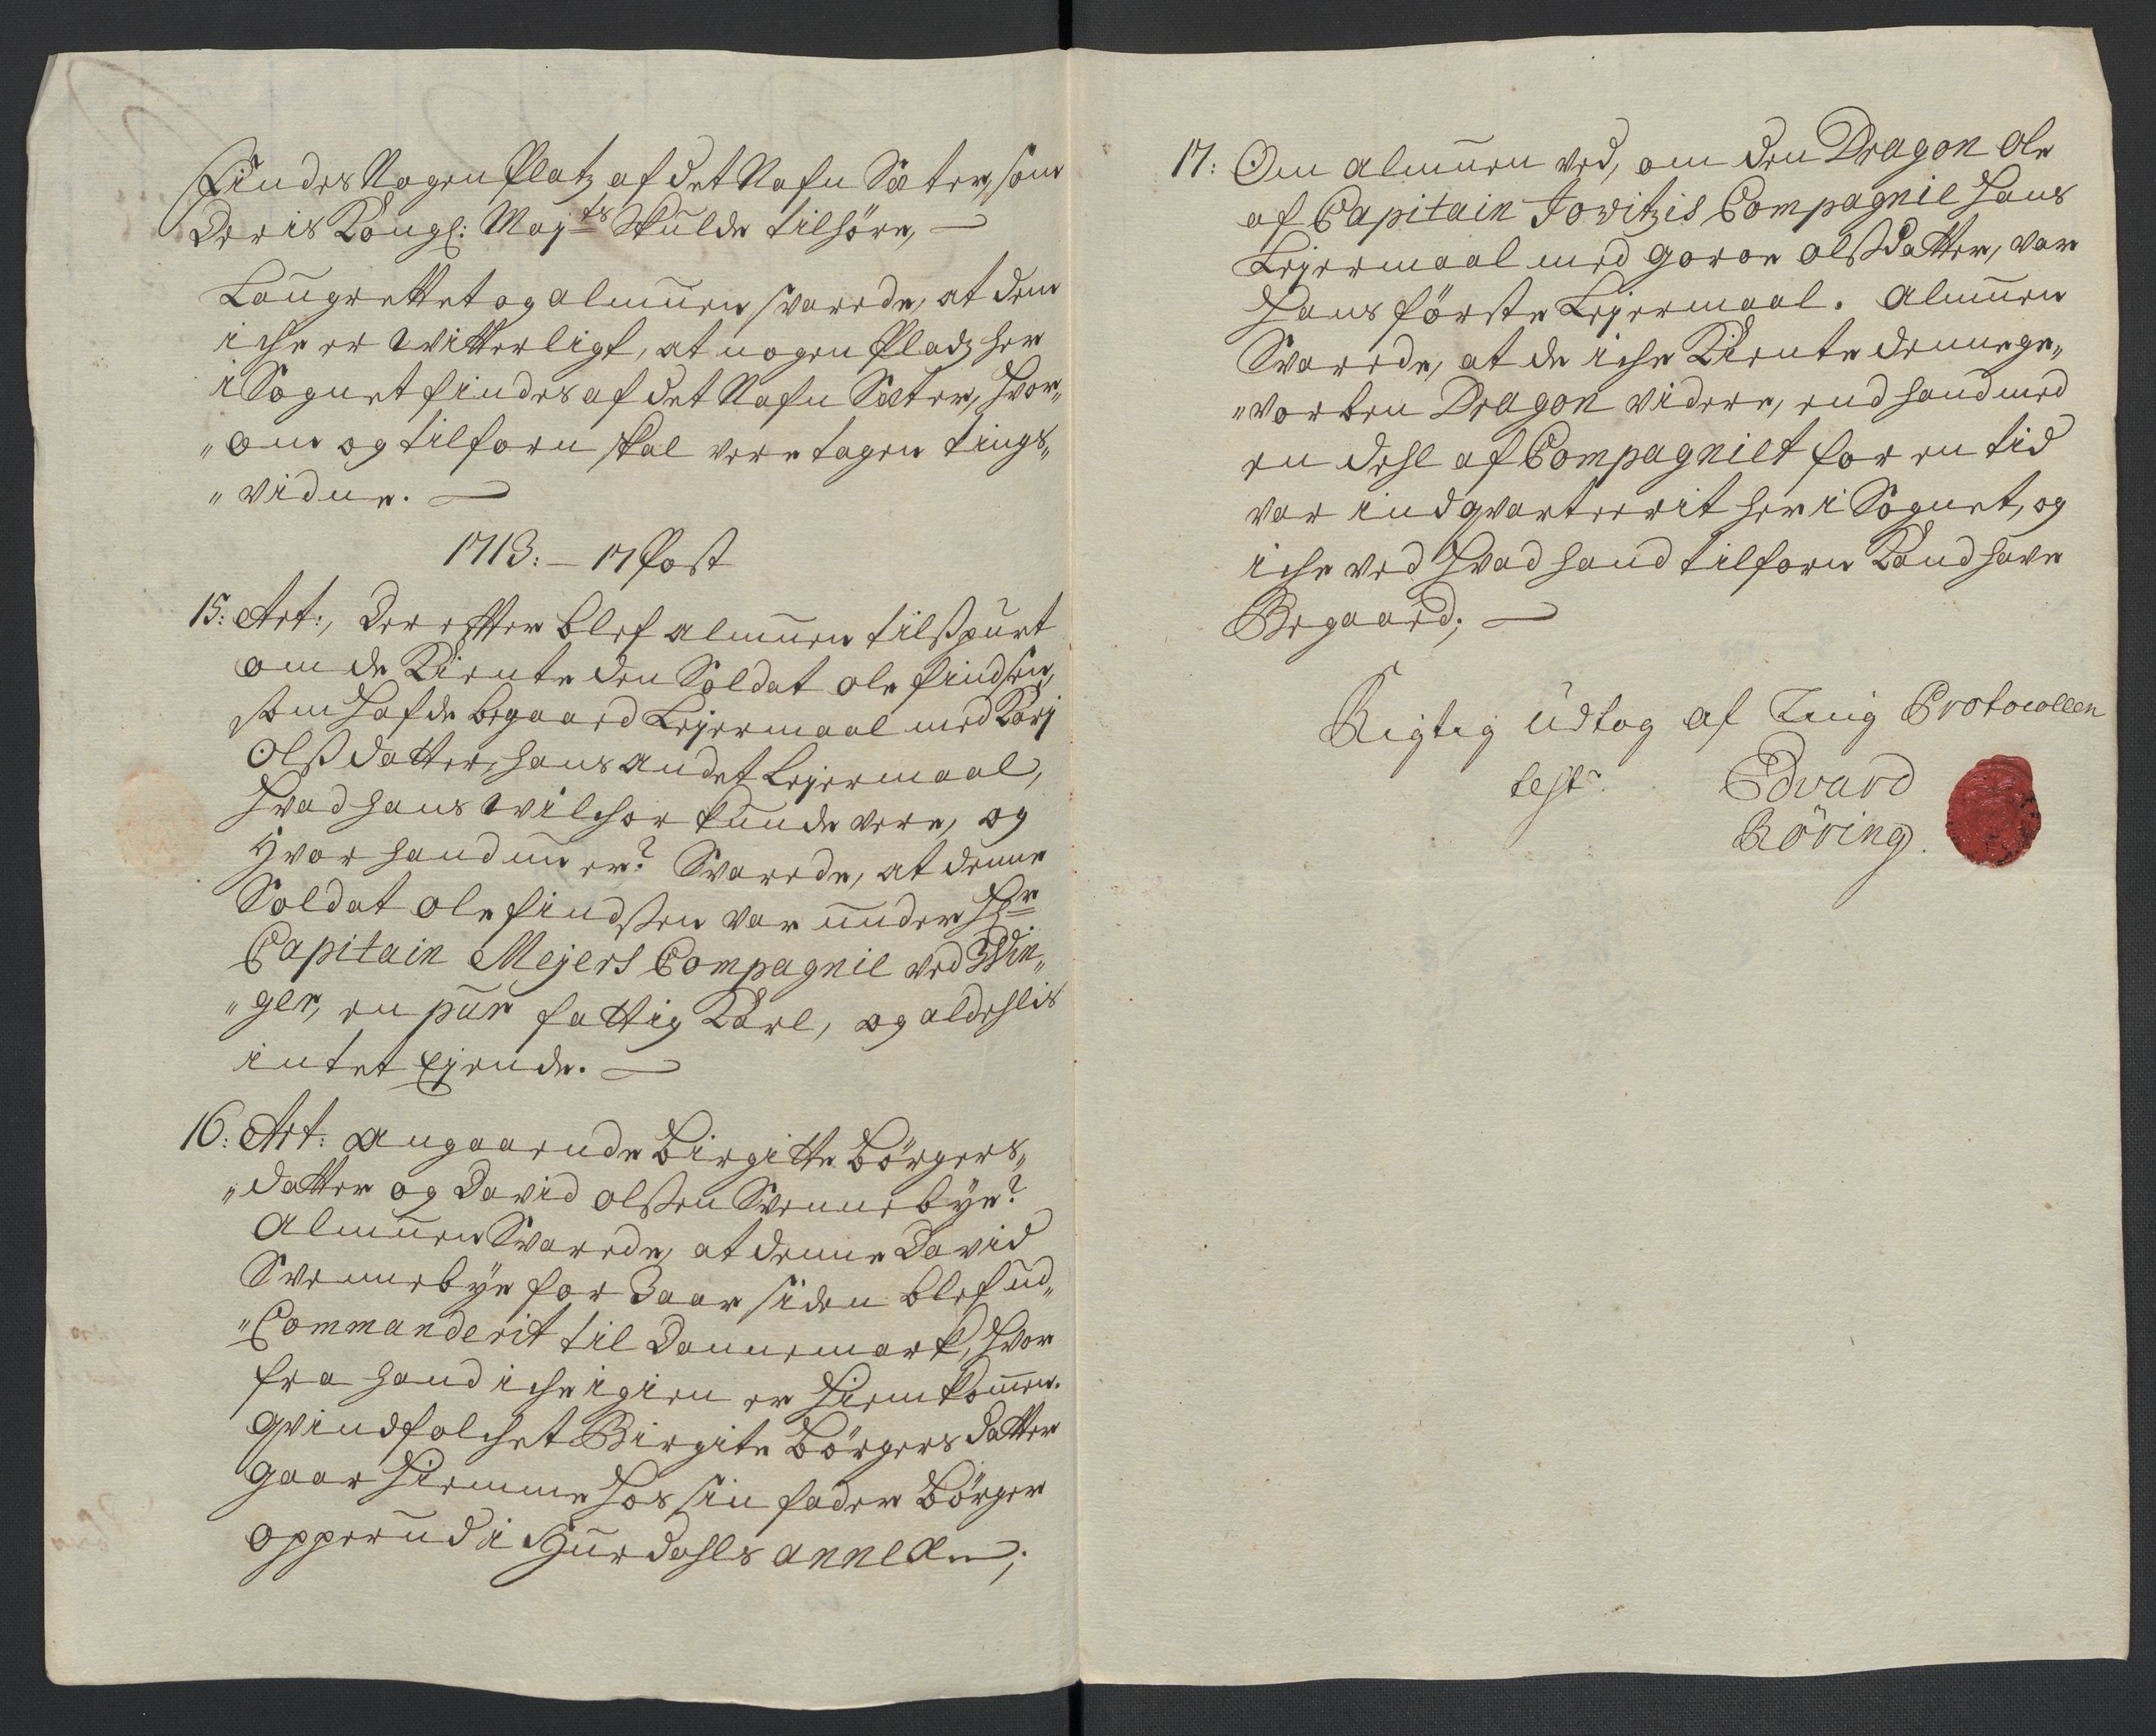 Findes Nogen Platz af det Nafn Sæter, som
Deris Kongl: Maj:ts Skulde tilhöre, —
Laugrettet og almuen svarede, at dem
iche er witterligt, at nogen Pladz her
i Sognet findes af det Nafn Sæter, Hvor„
„om og tilforn skal vere tagen tings„
„vidne. —
1713: — 17 Post
15: Art:, Der effter blef almuen tilspurt
om de Kiente den Soldat ole findsen,
som Hafde begaard Lejermaal med Karj
Olsdatter, hans andet Lejermaal,
Hvad hans wilchor kunde vere, og
Hvor hand nu er? Svarede, at denne
Soldat ole findssen var under Hr
Capitain Mejers Compagnie ved Win„
„ger, en pur fattig Karl, og aldehlis
intet Ejende. —
16: Art: angaaende Birgitte Börgers„
„datter og David olssen Svennebye?
Almuen Svarede, at denne David
Svennebye for 3 aar siden blef ud„
„Commanderit til Dannemark, Hvor
fra hand iche igien er Hiemkommen.
Qvindfolchet Birgite Börgers datter
gaar Hiemme Hos sin fader Börger
opperud i Hurdahls annexe;
17: Om almuen ved, om den Dragon Ole
af Capitain Jowitzis Compagnie Hans
Lejermaal med goron olssdatter, var
Hans förste Lejermaal. Almuen
Svarede, at de iche Kiente denne ge„
„vorben Dragon videre, end hand med
en dehl af Compagniet for en tid
var indqvarteerit her i Sognet, og
iche ved Hvad hand tilforn Kand have
Begaaed; —
Rigtig udtog af Ting Protocollen
test:
Edvard
Röring.